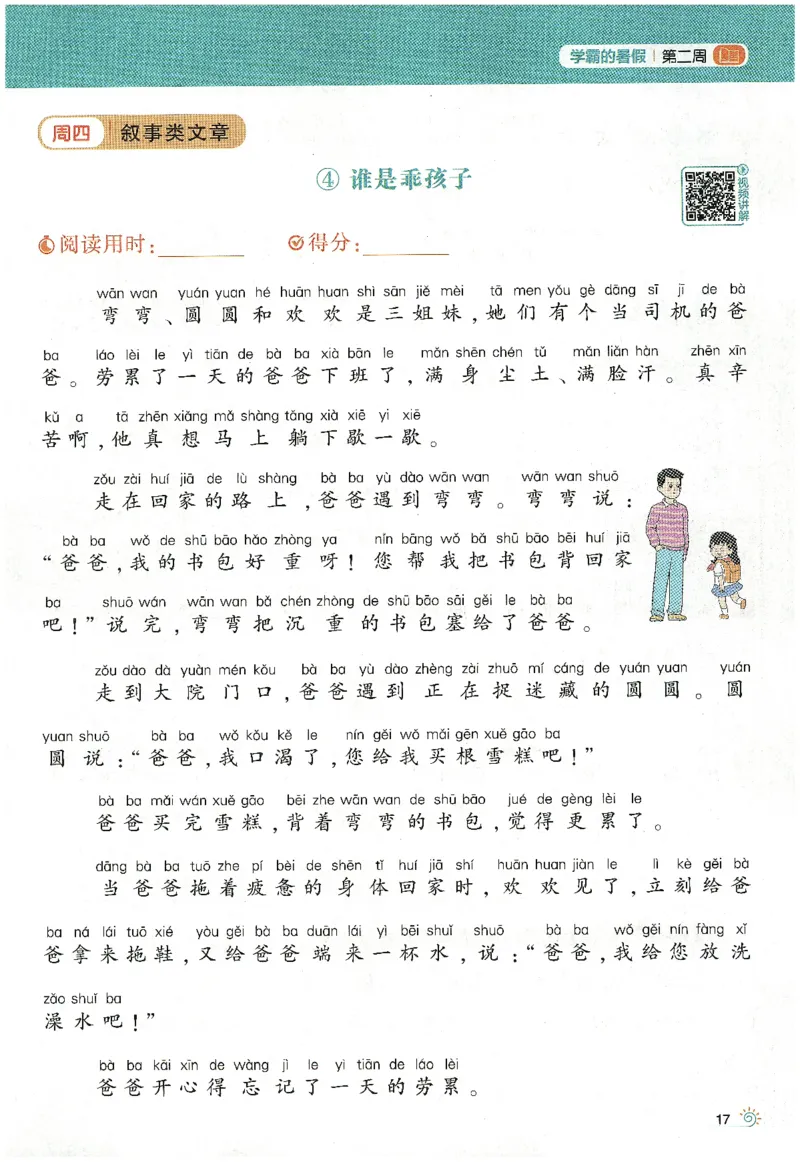 学霸的暑假 | 第二周
周四 叙事类文章
④ 谁是乖孩子
视频讲解
阅读用时：________ 得分：________
wān wan yuán yuan hé huān huan shì sān jiě mèi tā men yǒu gè dāng sī jī de bà
弯弯、圆圆和欢欢是三姐妹，她们有个当司机的爸
ba láo lèi le yì tiān de bà ba xià bān le mǎn shēn chén tǔ mǎn liǎn hàn zhēn xīn
爸。劳累了一天的爸爸下班了，满身尘土、满脸汗。真辛
kǔ a tā zhēn xiǎng mǎ shàng tǎng xià xiē yi xiē
苦啊，他真想马上躺下歇一歇。
zǒu zài huí jiā de lù shàng bà ba yù dào wān wan wān wan shuō
走在回家的路上，爸爸遇到弯弯。弯弯说：
bà ba wǒ de shū bāo hǎo zhòng ya nín bāng wǒ bǎ shū bāo bēi huí jiā
“爸爸，我的书包好重呀！您帮我把书包背回家
ba shuō wán wān wan bǎ chén zhòng de shū bāo sāi gěi le bà ba
吧！”说完，弯弯把沉重的书包塞给了爸爸。
zǒu dào dà yuàn mén kǒu bà ba yù dào zhèng zài zhuō mí cáng de yuán yuan yuán
走到大院门口，爸爸遇到正在捉迷藏的圆圆。圆
yuan shuō bà ba wǒ kǒu kě le nín gěi wǒ mǎi gēn xuě gāo ba
圆说：“爸爸，我口渴了，您给我买根雪糕吧！”
bà ba mǎi wán xuě gāo bēi zhe wān wan de shū bāo jué de gèng lèi le
爸爸买完雪糕，背着弯弯的书包，觉得更累了。
dāng bà ba tuō zhe pí bèi de shēn tǐ huí jiā shí huān huan jiàn le lì kè gěi bà
当爸爸拖着疲惫的身体回家时，欢欢见了，立刻给爸
ba ná lái tuō xié yòu gěi bà ba duān lái yì bēi shuǐ shuō bà ba wǒ gěi nín fàng xǐ
爸拿来拖鞋，又给爸爸端来一杯水，说：“爸爸，我给您放洗
zǎo shuǐ ba
澡水吧！”
bà ba kāi xīn de wàng jì le yì tiān de láo lèi
爸爸开心得忘记了一天的劳累。
17